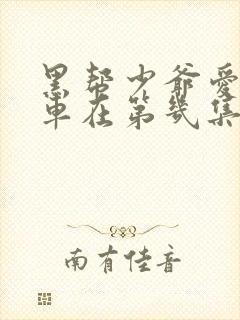 黑帮少爷爱
車在第幾集
南有佳音